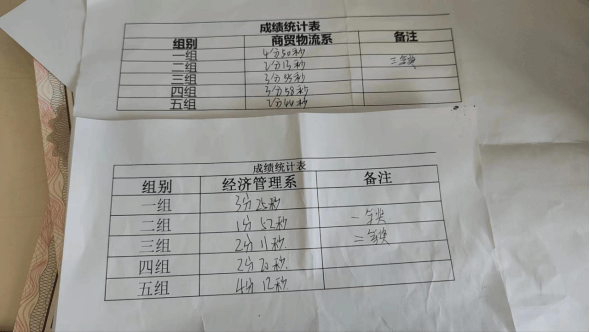 成绩统计表
组别 商贸物流系 备注
一组 4分50秒
二组 2分13秒 三等奖
三组 3分55秒
四组 3分58秒
五组 2分44秒
成绩统计表
组别 经济管理系 备注
一组 3分25秒
二组 1分52秒 一等奖
三组 2分11秒 二等奖
四组 2分20秒
五组 4分12秒